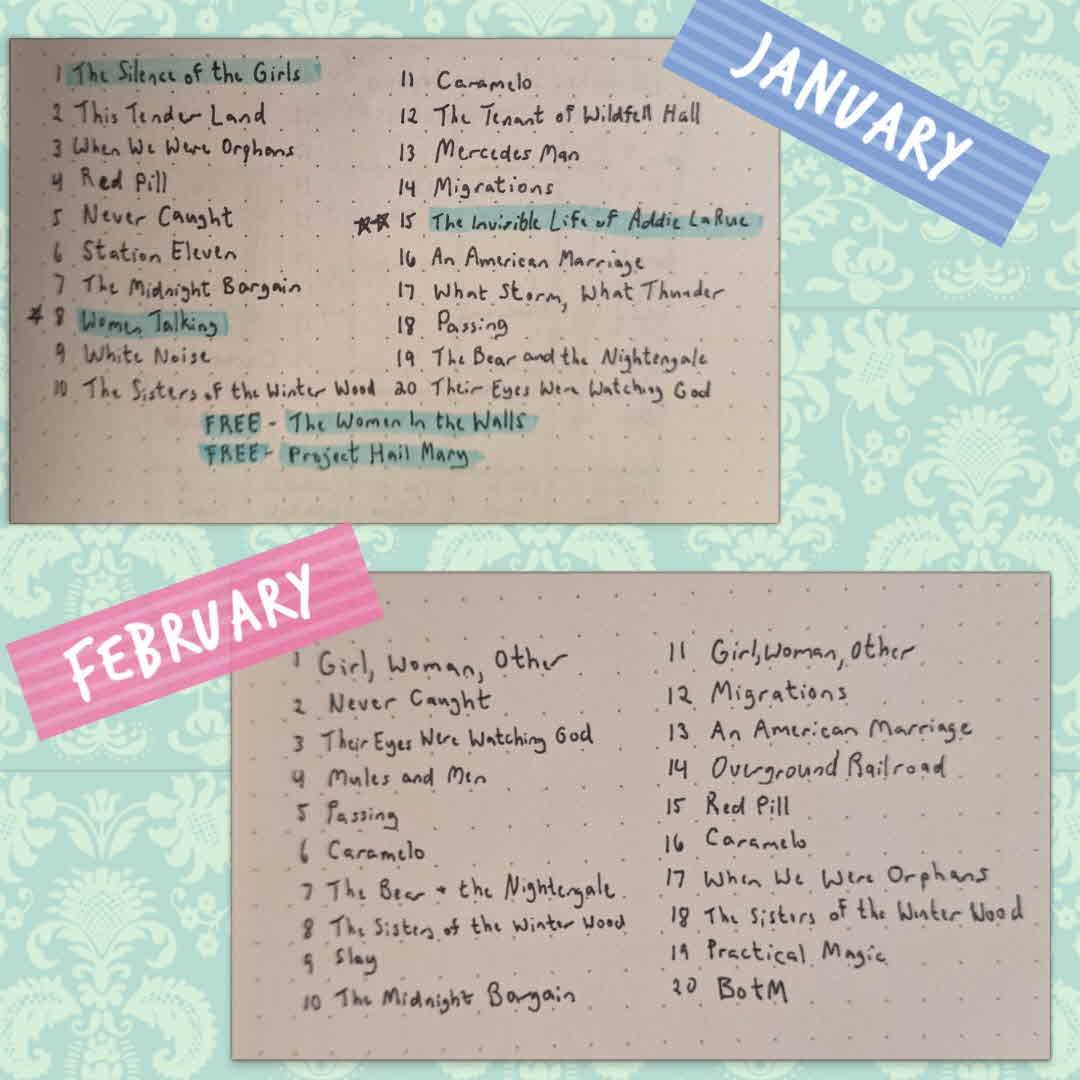 JANUARY
1 The Silence of the Girls
2 This Tender Land
3 When We Were Orphans
4 Red Pill
5 Never Caught
6 Station Eleven
7 The Midnight Bargain
8 Women Talking
9 White Noise
10 The Sisters of the Winter Wood
11 Caramelo
12 The Tenant of Wildfell Hall
13 Mercedes Man
14 Migrations
15 The Invisible Life of Addie LaRue
16 An American Marriage
17 What Storm, What Thunder
18 Passing
19 The Bear and the Nightengale
20 Their Eyes Were Watching God
FREE - The Women In the Walls
FREE - Project Hail Mary
FEBRUARY
1 Girl, Woman, Other
2 Never Caught
3 Their Eyes Were Watching God
4 Mules and Men
5 Passing
6 Caramelo
7 The Bear + the Nightengale
8 The Sisters of the Winter Wood
9 Slay
10 The Midnight Bargain
11 Girl, Woman, Other
12 Migrations
13 An American Marriage
14 Overground Railroad
15 Red Pill
16 Caramelo
17 When We Were Orphans
18 The Sisters of the Winter Wood
19 Practical Magic
20 BotM